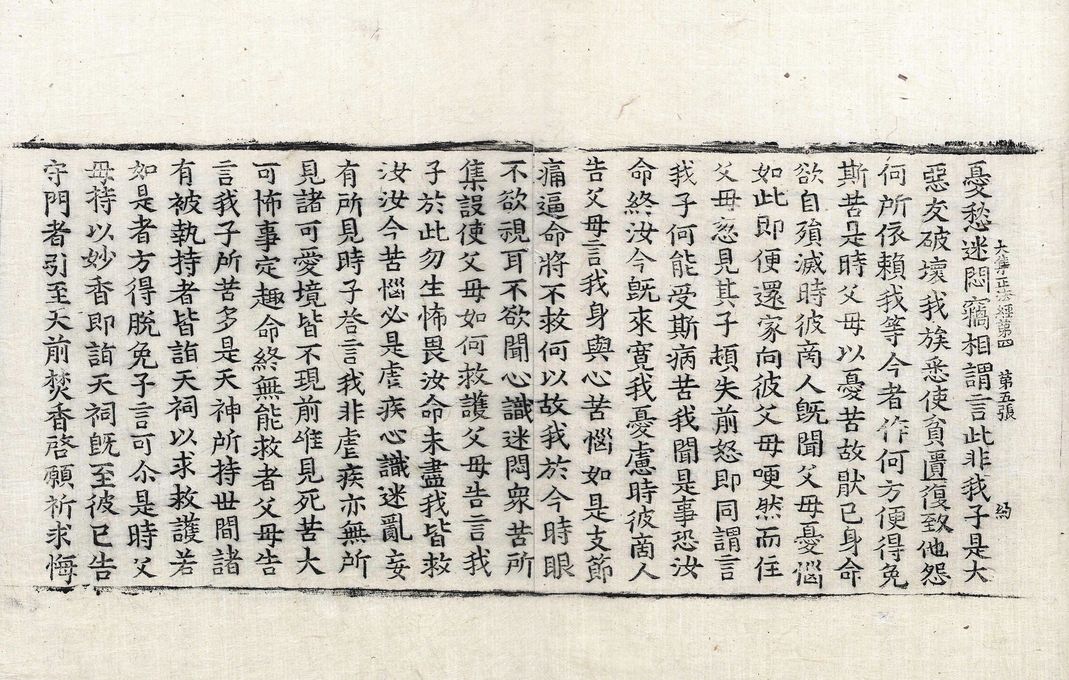 大集正法經第四　第五張
憂愁迷悶竊相謂言此非我子是大
惡友破壞我族悉使貧匱復致他怨
何所依賴我等今者作何方便得免
斯苦是時父母以憂苦故猒已身命
欲自殞滅時彼商人旣聞父母憂惱
如此即便還家向彼父母哽然而住
父母忽見其子頓失前怒即同謂言
我子何能受斯病苦我聞是事恐汝
命終汝今旣來寛我憂慮時彼商人
告父母言我身與心苦惱如是支節
痛逼命將不救何以故我於今時眼
不欲視耳不欲聞心識迷悶衆苦所
集設使父母如何救護父母告言我
子於此勿生怖畏汝命未盡我皆救
汝汝今苦惱必是虐疾心識迷亂妄
有所見時子荅言我非虐疾亦無所
見諸可愛境皆不現前唯見死苦大
可怖事定趣命終無能救者父母告
言我子所苦多是天神所持世間諸
有被執持者皆詣天祠以求救護若
如是者方得脫免子言可尒是時父
母持以妙香即詣天祠旣至彼已告
守門者引至天前焚香啓願祈求悔